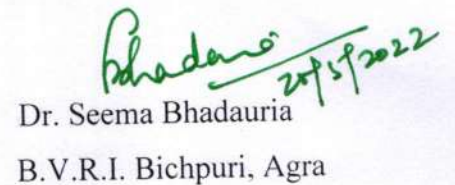 Bhadauria
20/5/2022
Dr. Seema Bhadauria
B.V.R.I. Bichpuri, Agra